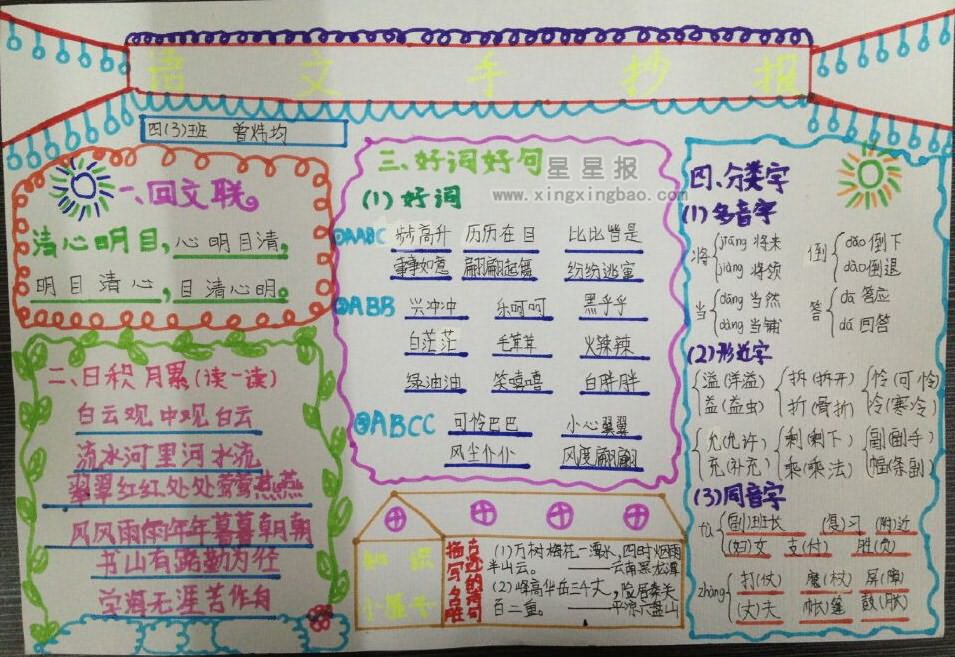 语 文 手 抄 报
四(3)班 曾炜均
星星报
www.xingxingbao.com
一、回文联。
清心明目,心明目清,
明目清心,目清心明。
二、日积月累(读一读)
白云观中观白云
流水河里河水流
翠翠红红处处莺莺燕燕
风风雨雨年年暮暮朝朝
书山有路勤为径
学海无涯苦作舟
三、好词好句
(1)好词
①AABC 步步高升 历历在目 比比皆是
事事如意 翩翩起舞 纷纷逃窜
②ABB 兴冲冲 乐呵呵 黑乎乎
白茫茫 毛茸茸 火辣辣
绿油油 笑嘻嘻 白胖胖
③ABCC 可怜巴巴 小心翼翼
风尘仆仆 风度翩翩
知识
描写名胜
古迹的诗句
(1)万树梅花一潭水,四时烟雨
半山云。 ——云南黑龙潭
(2)峰高华岳三千丈,险居秦关
百二重。 ——平凉六盘山
四、分类字
(1)多音字
将 jiāng 将来
jiàng 将领
倒 dǎo 倒下
dào 倒退
当 dāng 当然
dàng 当铺
答 dā 答应
dá 回答
(2)形近字
溢(洋溢) 拆(拆开) 怜(可怜)
益(益虫) 折(骨折) 冷(寒冷)
允(允许) 剩(剩下) 副(副手)
充(补充) 乘(乘法) 幅(条副)
(3)同音字
fù (副)班长 (复)习 (附)近
(妇)女 支(付) 胜(负)
zhàng 打(仗) 魔(杖) 屏(障)
(丈)夫 帐篷 鼓(胀)